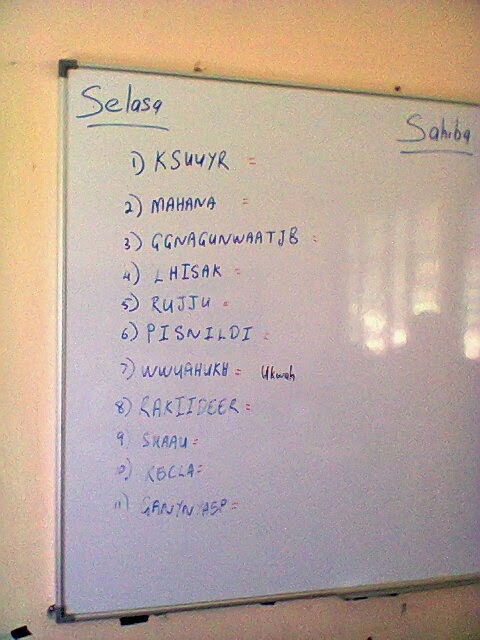 Selasa
Sahiba
1) KSUUYR =
2) MAHANA =
3) GGNAGUNWAATJB =
4) LHISAK =
5) RUJJU =
6) PISNILDI =
7) WWUAHUKH = Ukwah
8) RAKIIDEER =
9) SHAAU =
10) KECLA=
11) GANYNYASP=